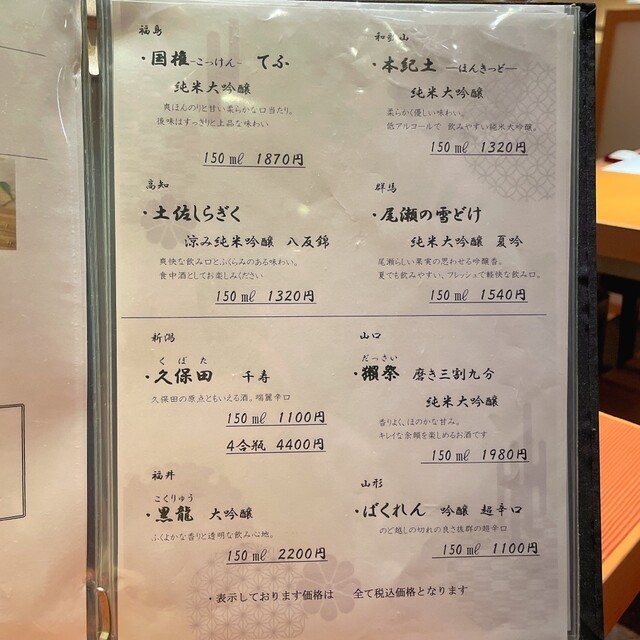 福島
・国権-こっけん- てふ
純米大吟醸
爽ほんのりと甘い柔らかな口当たり。
後味はすっきりと上品な味わい
150㎖ 1870円
和歌山
・本紀土 ―ほんきっど―
純米大吟醸
柔らかく優しい味わい。
低アルコールで 飲みやすい純米大吟醸。
150㎖ 1320円
高知
・土佐しらぎく
涼み純米吟醸 八反錦
爽快な飲み口とふくらみのある味わい。
食中酒としてお楽しみください
150㎖ 1320円
群馬
・尾瀬の雪どけ
純米大吟醸 夏吟
尾瀬らしい果実の思わせる吟醸香。
夏でも飲みやすい、フレッシュで軽快な飲み口。
150㎖ 1540円
新潟
くぼた
・久保田 千寿
久保田の原点ともいえる酒。端麗辛口
150㎖ 1100円
4合瓶 4400円
山口
だっさい
・獺祭 磨き三割九分
純米大吟醸
香りよく、ほのかな甘み。
キレイな余韻を楽しめるお酒です
150㎖ 1980円
福井
こくりゅう
・黒龍 大吟醸
ふくよかな香りと透明な飲み心地。
150㎖ 2200円
山形
・ばくれん 吟醸 超辛口
のど越しの切れの良さ抜群の超辛口
150㎖ 1100円
・表示しております価格は 全て税込価格となります